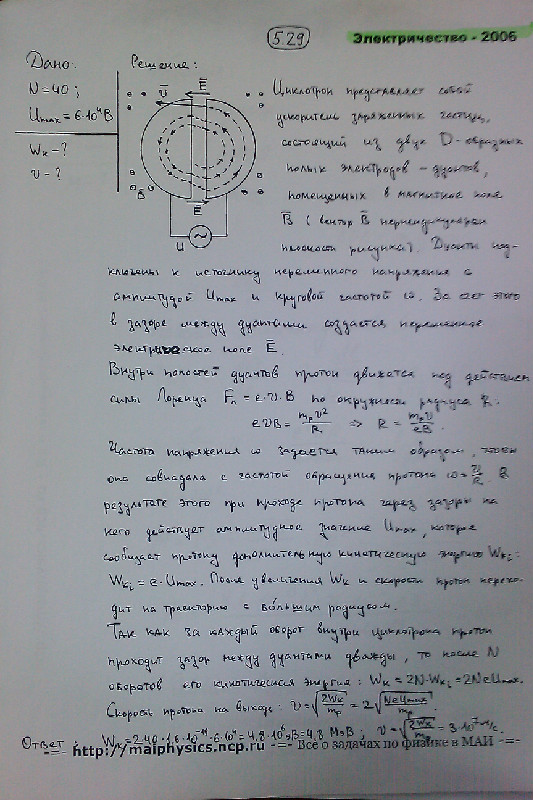 5.29
Электричество - 2006
Дано:
N=40;
Umax = 6·10⁴В
Wк - ?
v - ?
Решение:
v̄ Ē
B̄ Ē
U
Циклотрон представляет собой
ускоритель заряженных частиц,
состоящий из двух D-образных
полых электродов - дуантов,
помещенных в магнитное поле
B̄ (вектор B̄ перпендикулярен
плоскости рисунка). Дуанты под-
ключены к источнику переменного напряжения с
амплитудой Umax и круговой частотой ω. За счет этого
в зазоре между дуантами создается переменное
электрическое поле Ē.
Внутри полостей дуантов протон движется под действием
силы Лоренца Fл = e·v·B по окружности радиуса R.
evB = mₚv²/R, ⇒ R = mₚv/eB.
Частота напряжения ω задается таким образом, чтобы
она совпадала с частотой обращения протона ω = v/R. В
результате этого при проходе протона через зазоры на
него действует амплитудное значение Umax, которое
сообщает протону дополнительную кинетическую энергию Wкi:
Wкi = e·Umax. После увеличения Wк и скорости протон перехо-
дит на траекторию с бо́льшим радиусом.
Так как за каждый оборот внутри циклотрона протон
проходит зазор между дуантами дважды, то после N
оборотов его кинетическая энергия: Wк = 2N·Wкi = 2NeUmax.
Скорость протона на выходе: v = √(2Wк/mₚ) = 2√(NeUmax/mₚ).
Ответ: Wк = 2·40·1,6·10⁻¹⁹·6·10⁴ = 4,8·10⁶эВ = 4,8 МэВ; v = √(2Wк/mₚ) = 3·10⁷м/с.
-=- http://maiphysics.ncp.ru -=- Все о задачах по физике в МАИ -=-